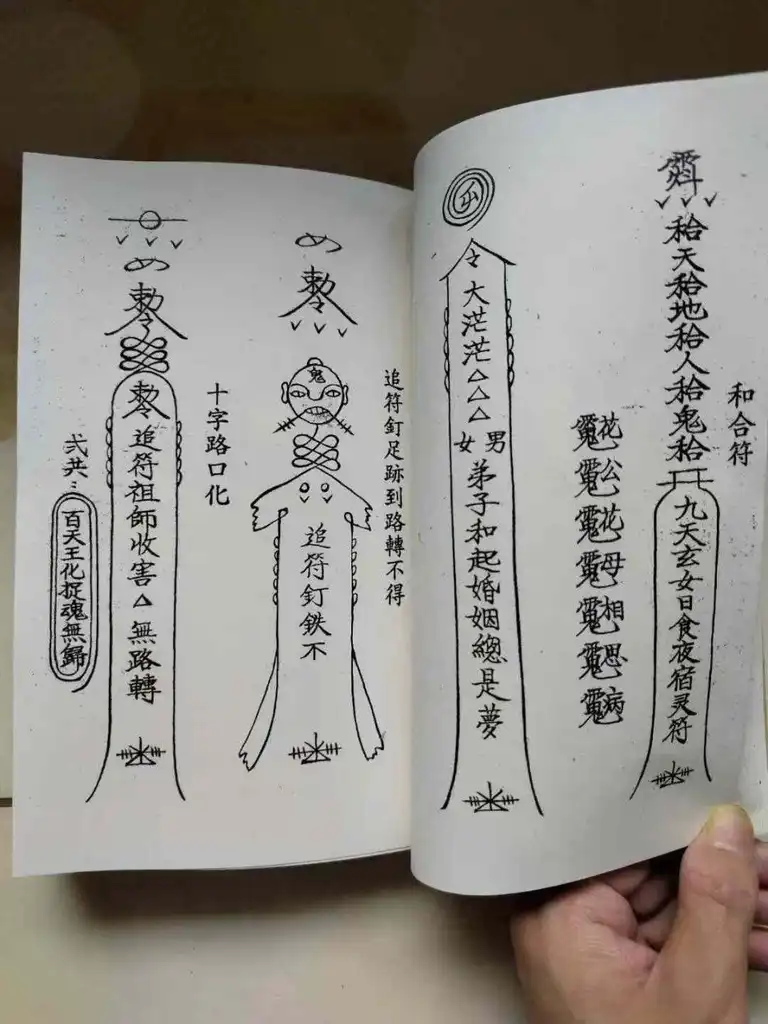 和合符
秴天秴地秴人秴鬼秴
九天玄女日食夜宿灵符
花公花母相思病
令
大茫茫△△△
男女
弟子和起婚姻總是夢
追符釘足跡到路轉不得
敕令
鬼
追符釘鉄不
十字路口化
敕令
敕令
追符祖師收害△無路轉
弍共:
百天王化捉魂無歸